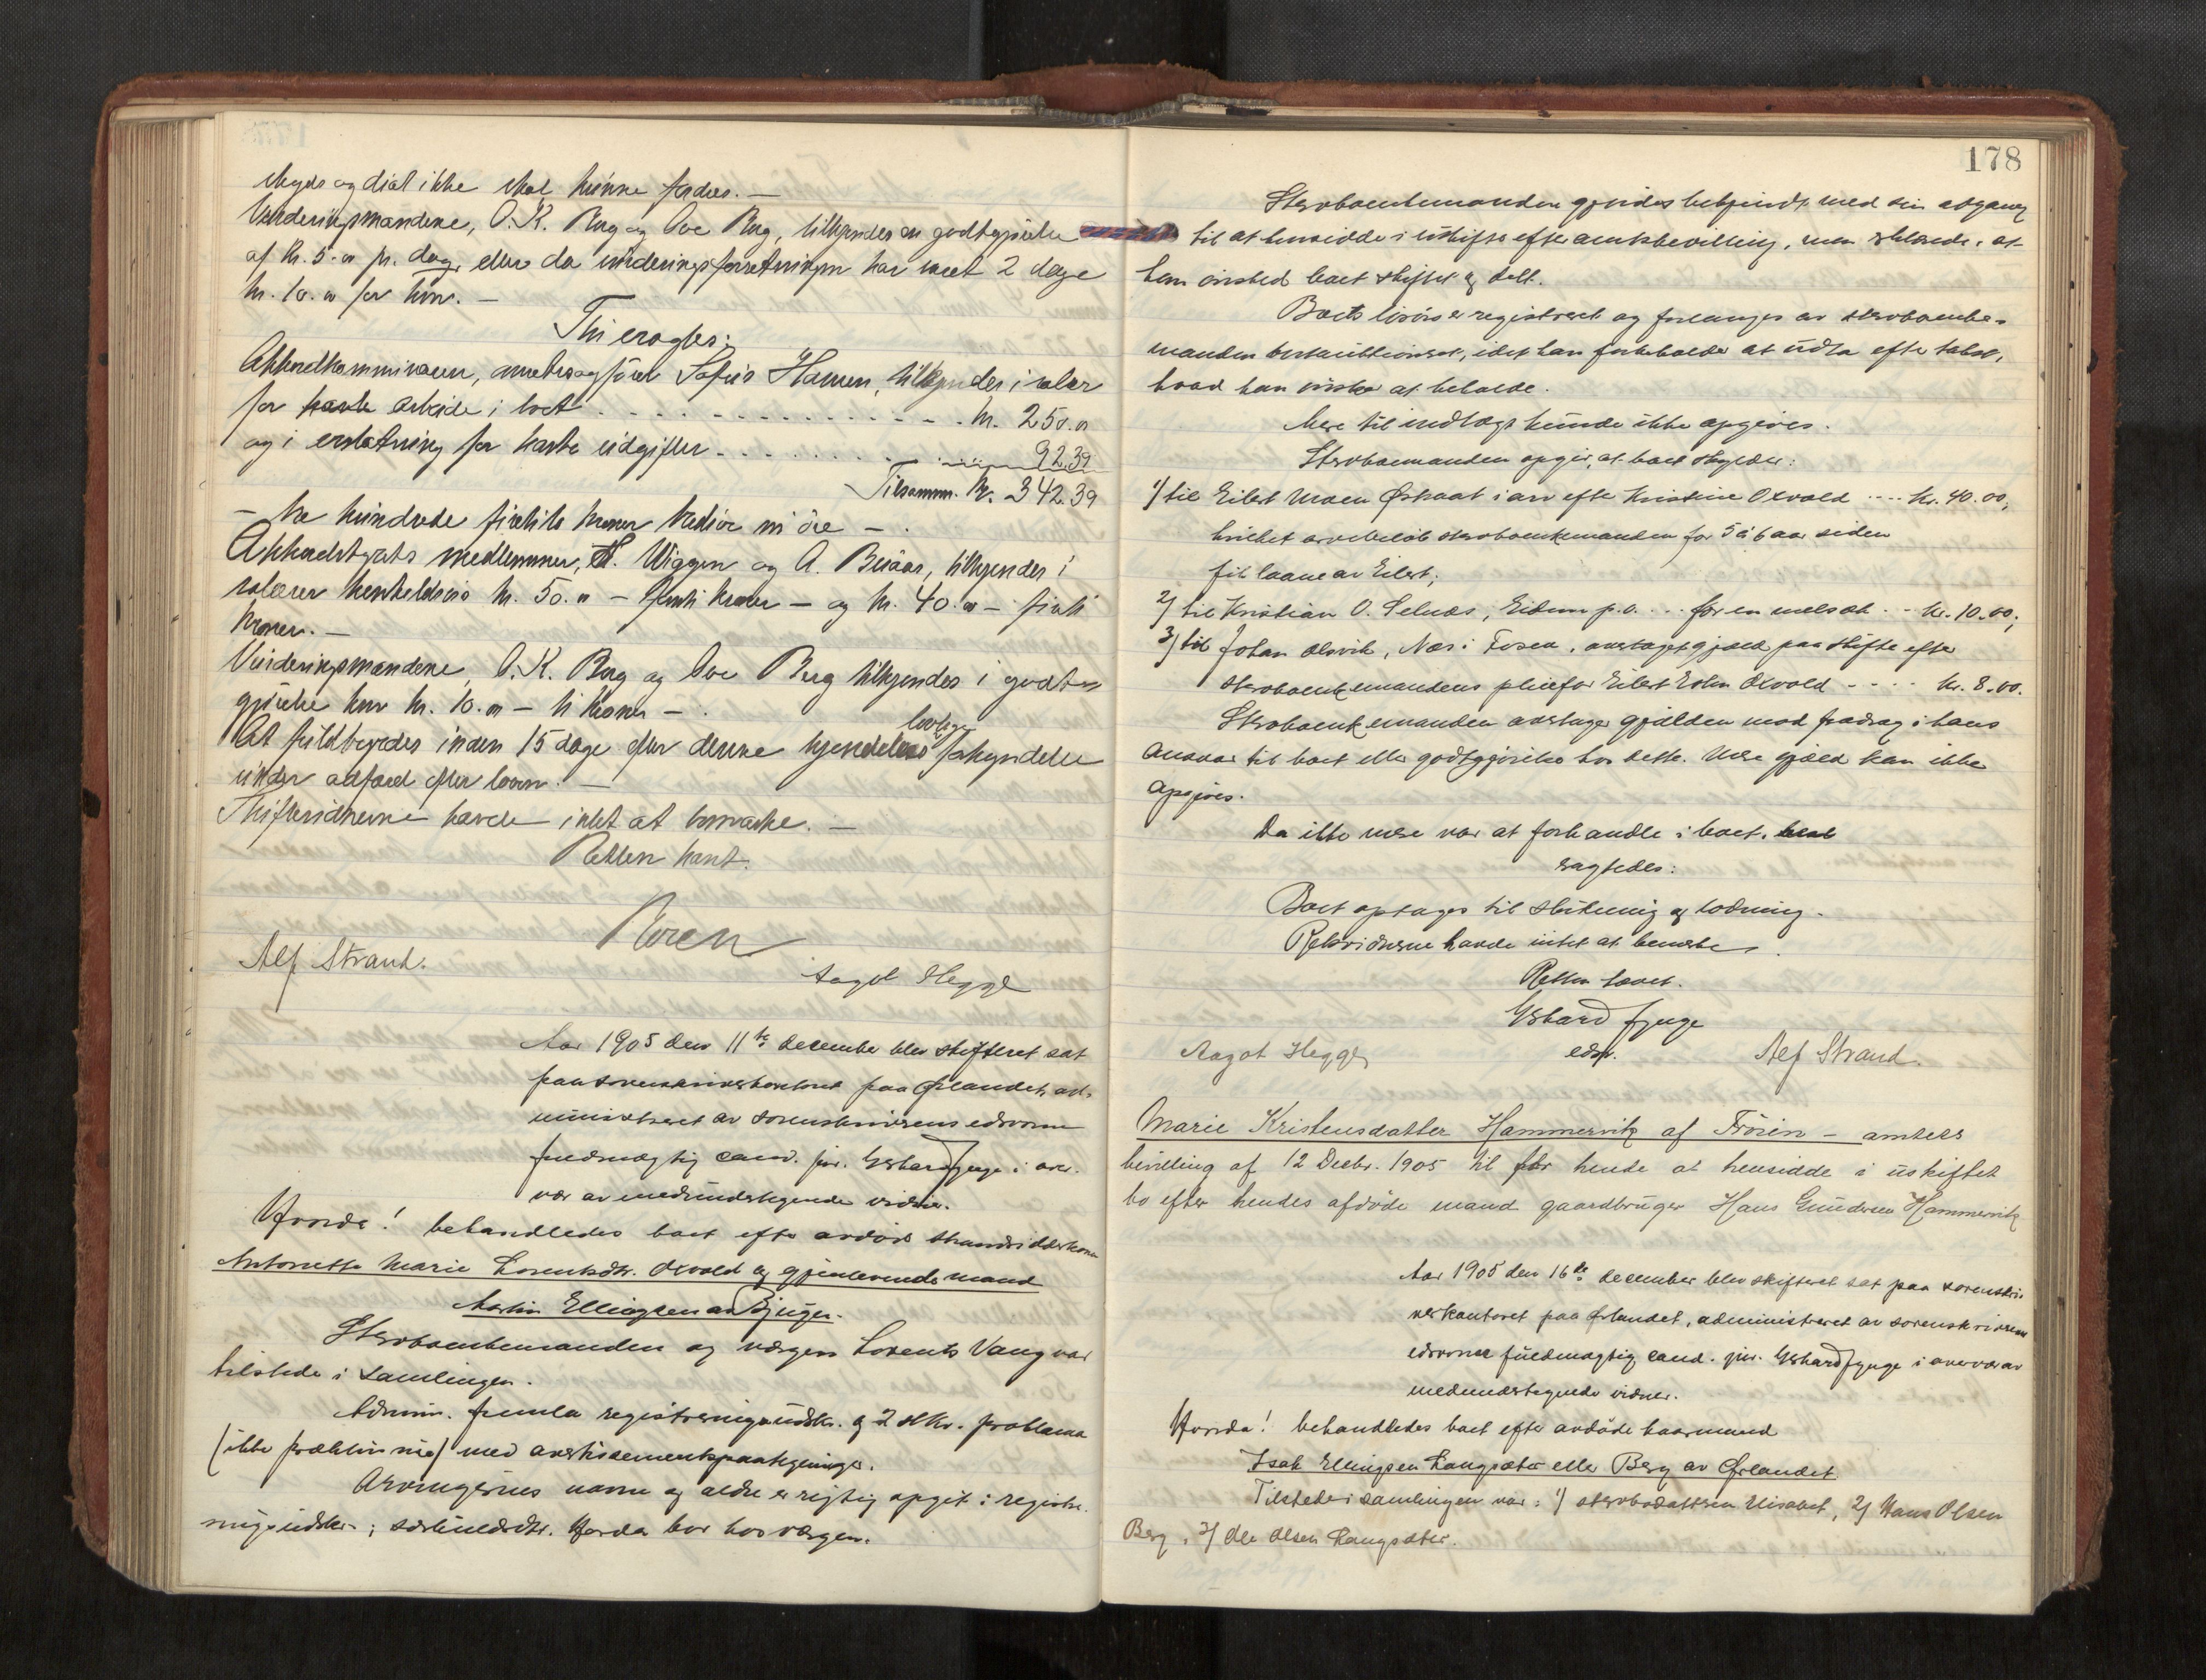 skyds og diæt ikke skal kunne fordres. —
Vurderingsmændene, O. K. Berg og Ove Berg, tilkjendes en godtgjørelse
af kr. 5.00 pr. dag, eller da vurderingsforretningen har varet 2 dage
kr. 10.00 for hver. —
Thi eragtes:
Akkordkommissæren, overretssagfører Sofus Hansen, tilkjendes i salær
for havte arbeide i boet . . . . kr. 250.00
og i erstatning for havte udgifter . . . . 92.39
Tilsamm. kr. 342.39
— tre hundrede firtito kroner treti og ni øre —.
Akkordstyrets medlemmer, Wiggen og A. Buaas, tilkjendes i
salærer henholdsvis kr. 50.00 — femti kroner — og kr. 40.00 — firti
kroner. —
Vurderingsmændene, O. K. Berg og Ove Berg tilkjendes i godt-
gjørelse hver kr. 10.00 — ti kroner —.
At fuldbyrdes inden 15 dage efter denne kjendelses lovlige forkyndelse
under adfærd efter loven. —
Skiftevidnerne havde intet at bemærke. —
Retten hævet.
Noren
Alf Strand.
Aagot Hegge
Aar 1905 den 11te december blev skifteret sat
paa sorenskriverkontoret paa Ørlandet, ad-
ministreret av sorenskriverens edsvorne
fuldmægtig cand. jur. Ysbard Fyuge i over-
vær av medundertegnede vidner.
Hvorda! behandledes boet efter avdøde strandsidderkone
Antonette Marie Lorentsdtr. Osvold og gjenlevende mand
Martin Ellingsen av Bjugn.
Stervboenkemanden og værgen Lorents Vang var
tilstede i samlingen.
Admin. fremla registreringsudskr. og 2 stkr. proklama
(ikke præklusive) med avertissementspaategninger.
Arvingernes navne og alder er rigtig opgit i registre-
ringsudskr.; særkuldsdtr. Hovda bor hos værgen.
178
Stervboenkemanden gjordes bekjendt med sin adgang
til at hensidde i uskifte efter amtsbevilling, men erklærede, at
han ønsked boet skiftet og delt.
Boets løsøre er registreret og forlanges av stervboenke-
manden bortauktioneret, idet han forbeholder at udta efter takst,
hvad han ønsker at beholde.
Mere til indtægt kunde ikke opgives.
Stervboemanden opgir, at boet skylder:
1) til Eilert Moen Østraat i arv efter Kristine Osvold . . . . kr. 40.00,
hvilket arvebeløb stervboenkemanden for 5 à 6 aar siden
fik laane av Eilert;
2) til Kristian O. Selnæs, Eidem p.o. . . . for en melsæk . . kr. 10.00;
3) til Johan Olsvik, Næs i Fosen, overtaget gjæld paa skifte efter
stervboenkemandens pleiefar Eilert Osvold . . . . kr. 8.00.
Stervboenkemanden overtager gjælden mod fradrag i hans
ansvar til boet eller godtgjørelse hos dette. Mere gjæld kan ikke
opgives.
Da ikke mere var at forhandle i boet,
eragtedes:
Boet optages til slutning og lodning.
Retsvidnerne havde intet at bemerke.
Retten hævet.
Ysbard Fyuge
edsv.
Aagot Hegge
Alf Strand.
Marie Kristensdatter Hammervik af Frøien — amtets
bevilling af 12 Decbr. 1905 til for hende at hensidde i uskiftet
bo efter hendes afdøde mand gaardbruger Hans Gundersen Hammervik
Aar 1905 den 16de december blev skifteret sat paa sorenskri-
verkontoret paa Ørlandet, administreret av sorenskriverens
edsvorne fuldmægtig cand. jur. Ysbard Fyuge i overvær av
medundertegnede vidner.
Hvorda! behandledes boet efter avdøde kaarmand
Isak Ellingsen Langsæter eller Berg av Ørlandet
Tilstede i samlingen var: 1) stervbodatteren Elisabet, 2) Hans Olsen
Berg, 3) Ole Olsen Langsæter.